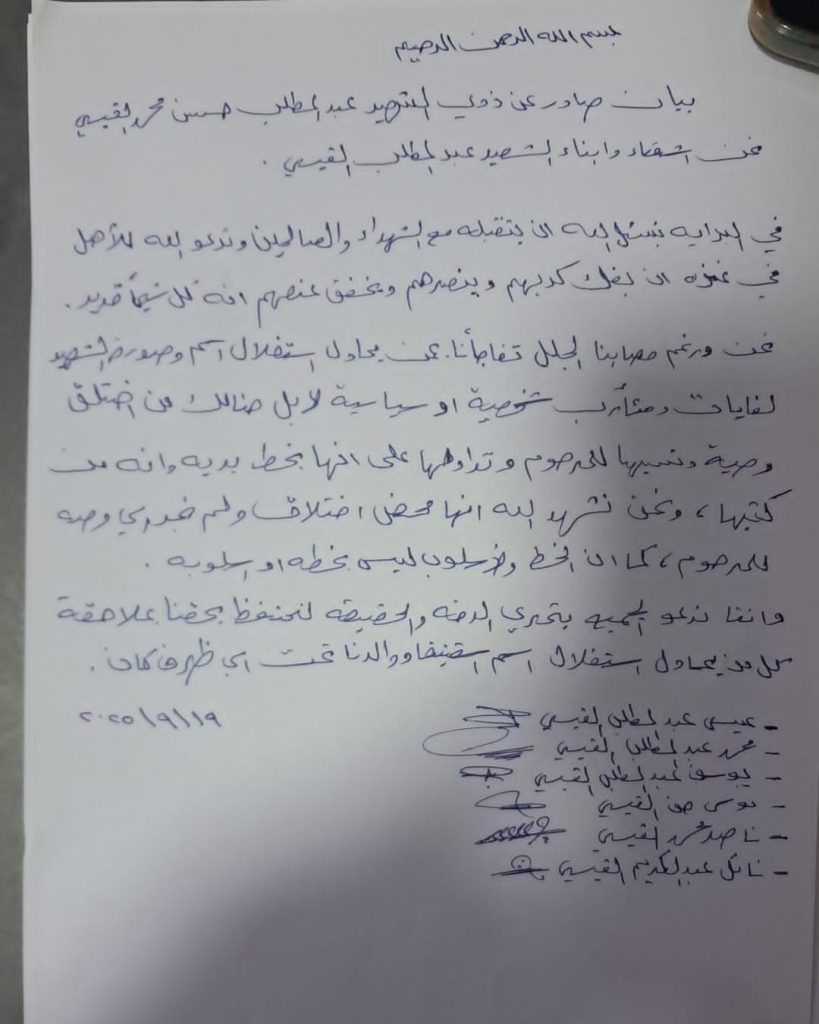 بسم الله الرحمن الرحيم
بيان صادر عن ذوي الشهيد عبد المطلب حسن محمد القيسي
نحن اشقاء وابناء الشهيد عبد المطلب القيسي .
في البدايه نسئل الله ان يتقبله مع الشهداء والصالحين وندعو الله للأهل
في غزه ان يفك كربهم وينصرهم ويخفف عنهم انه كل شيئاً قدير .
نحن ورغم مصابنا الجلل تفاجأنا بمن يحاول استغلال اسم وصورة الشهيد
لغايات ومئأرب شخصية او سياسية لا بل هنالك من اختلق
وصية ونسبها للمرحوم وتداولها على انها بخط يديه وانه من
كتبها ، ونحن نشهد الله انها محض اختلاق ولم نجد اي وصيه
للمرحوم ، كما ان الخط والاسلوب ليس بخطه او اسلوبه .
واننا ندعو الجميع بتحري الدقه والحقيقه لنحتفظ بحقنا بملاحقة
كل من يحاول استغلال اسم اشقيقنا ووالدنا تحت اي ظرف كان .
- عيسى عبد المطلب القيسي ٢٠٢٥/٩/١٩
- محمد عبد المطلب القيسي
- يوسف عبد المطلب القيسي
- موسى حسن القيسي
- ناصر محمد القيسي
- نائل عبد الكريم القيسي